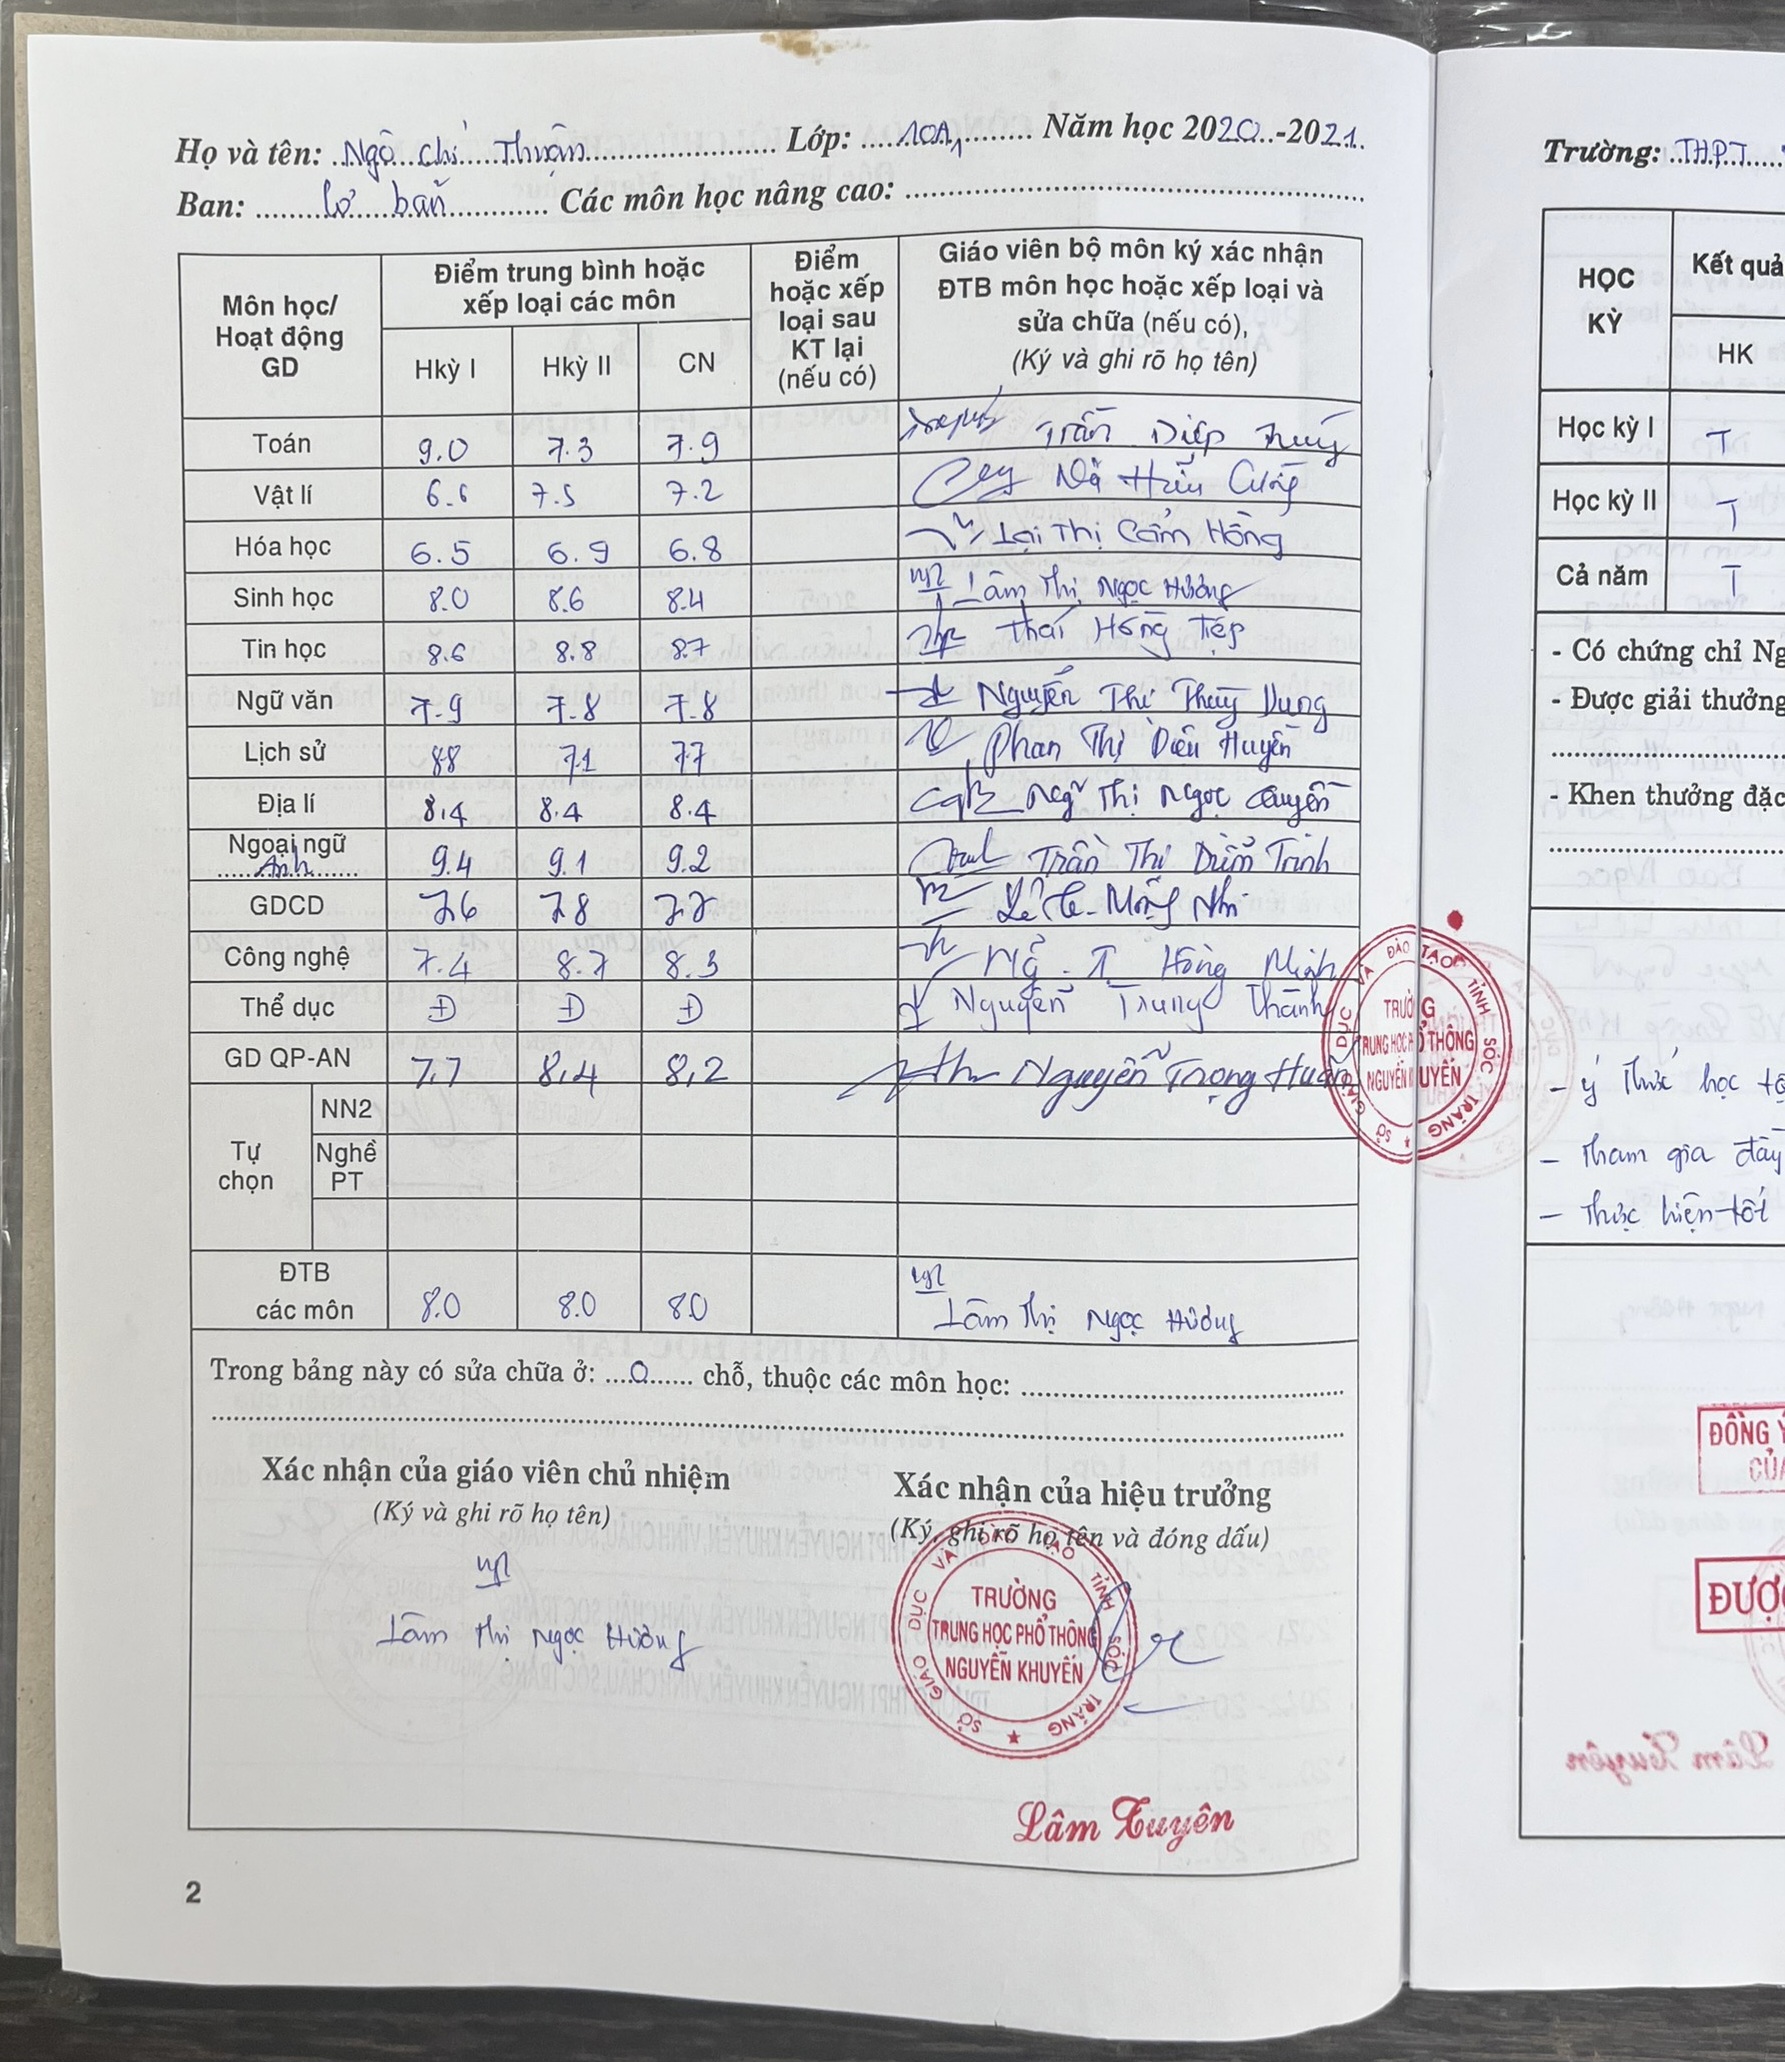 Họ và tên: Ngô Chí Thuận Lớp: 10A1 Năm học 2020-2021
Ban: Cơ bản Các môn học nâng cao:
Môn học/ Hoạt động GD
Điểm trung bình hoặc xếp loại các môn
Hkỳ I Hkỳ II CN
Điểm hoặc xếp loại sau KT lại (nếu có)
Giáo viên bộ môn ký xác nhận ĐTB môn học hoặc xếp loại và sửa chữa (nếu có), (Ký và ghi rõ họ tên)
Toán 9.0 7.3 7.9 Trần Diệp
Vật lí 6.6 7.5 7.2 Hữu
Hóa học 6.5 6.9 6.8 Lại Thị Cẩm Hồng
Sinh học 8.0 8.6 8.4 Lâm Thị Ngọc Hương
Tin học 8.6 8.8 8.7 Thái Hồng Tiếp
Ngữ văn 7.9 7.8 7.8 Nguyễn Thị Thùy Dung
Lịch sử 8.8 7.1 7.7 Phan Thị Diệu Huyền
Địa lí 8.4 8.4 8.4 Thị Ngọc Quyền
Ngoại ngữ Anh 9.4 9.1 9.2 Trần Thị Diễm Trinh
GDCD 7.6 7.8 7.7 Mộng Nhi
Công nghệ 7.4 8.7 8.3 Hồng Minh
Thể dục Đ Đ Đ Nguyễn Trung Thành
GD QP-AN 7.7 8.4 8.2 Nguyễn Trọng Huấn
Tự chọn
NN2
Nghề PT
ĐTB các môn 8.0 8.0 8.0 Lâm Thị Ngọc Hương
Trong bảng này có sửa chữa ở: 0 chỗ, thuộc các môn học:
Xác nhận của giáo viên chủ nhiệm
(Ký và ghi rõ họ tên)
Lâm Thị Ngọc Hương
Xác nhận của hiệu trưởng
(Ký, ghi rõ họ tên và đóng dấu)
SỞ GIÁO DỤC VÀ ĐÀO TẠO TỈNH SÓC TRĂNG
TRƯỜNG
TRUNG HỌC PHỔ THÔNG
NGUYỄN KHUYẾN
Lâm Tuyên
2
SỞ GIÁO DỤC VÀ ĐÀO TẠO TỈNH SÓC TRĂNG
TRƯỜNG
TRUNG HỌC PHỔ THÔNG
NGUYỄN KHUYẾN
Trường: THPT
HỌC KỲ
Kết quả
HK
Học kỳ I T
Học kỳ II T
Cả năm T
- Có chứng chỉ Ng
- Được giải thưởng
- Khen thưởng đặc
- ý thức học tố
- Tham gia đầy
- Thực hiện tốt
ĐỒNG Ý
CỦA
ĐƯỢC